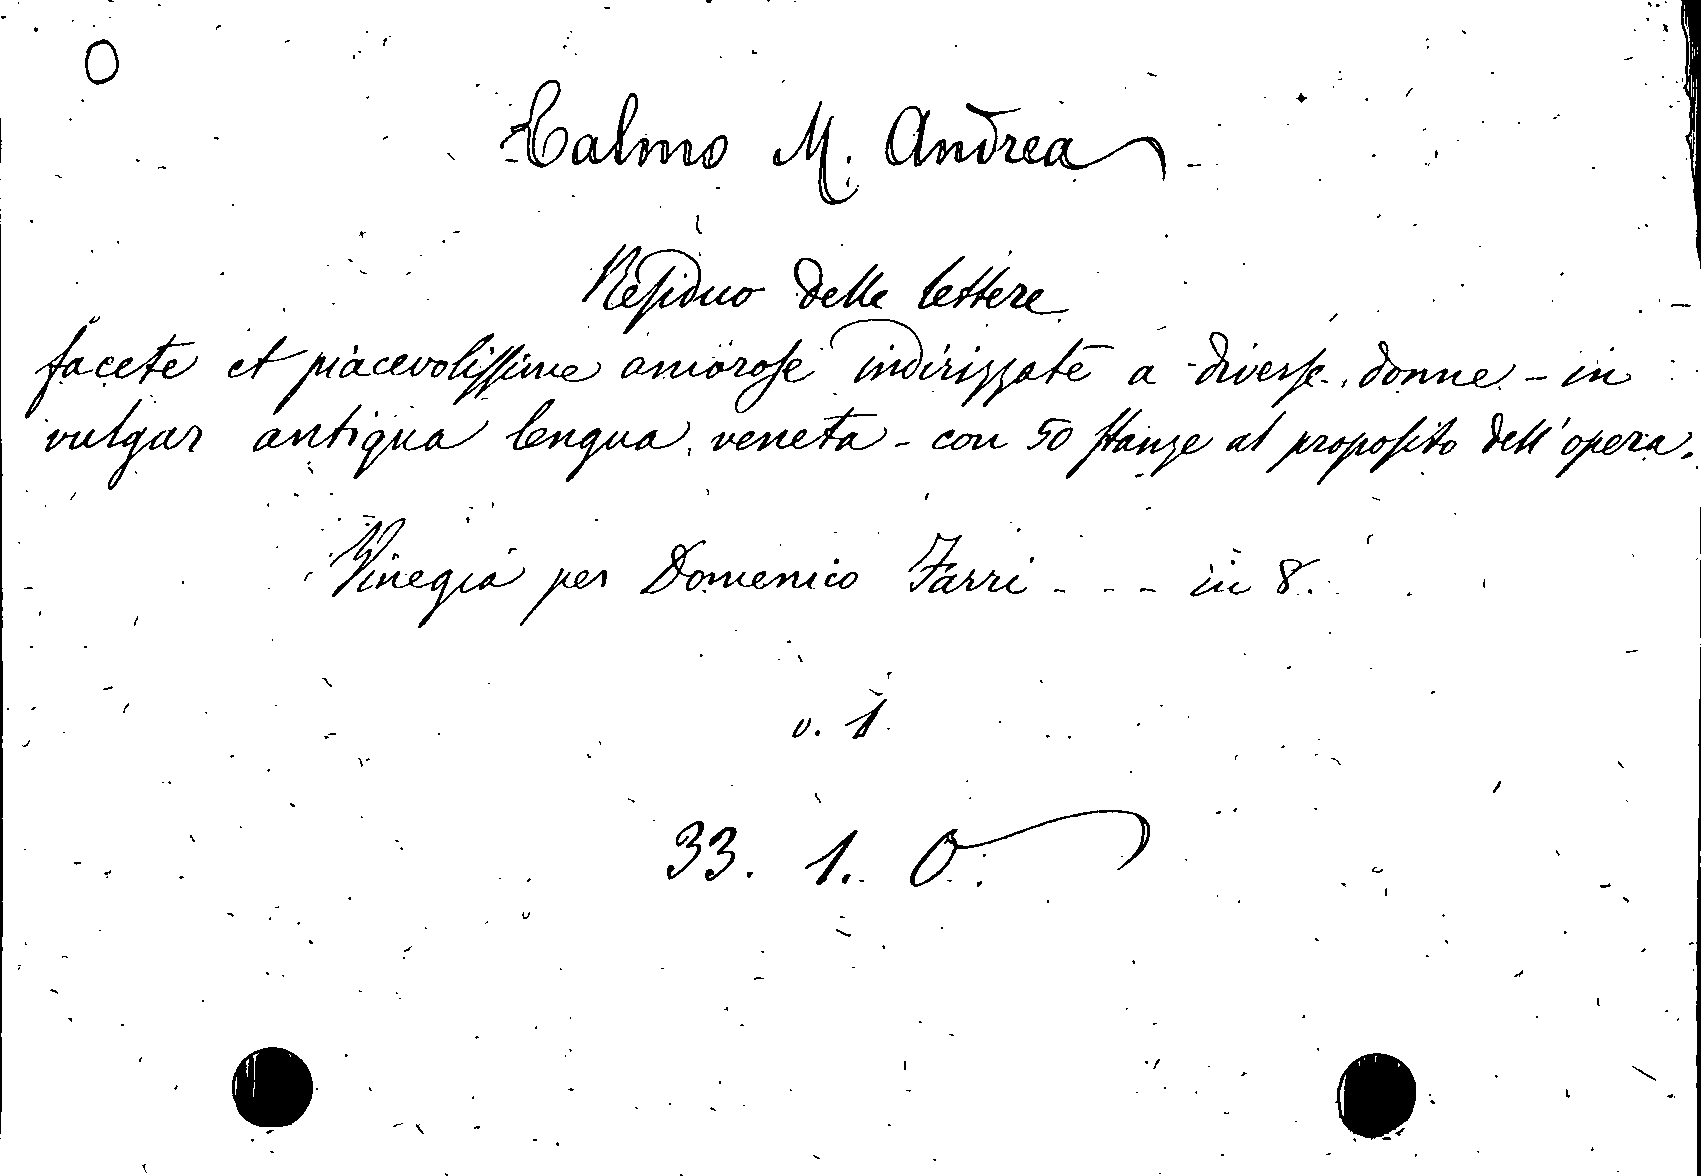 O
Calmo M. Andrea
Residuo delle lettere
facete et piacevolissime amorose indirizzate a diverse donne - in
vulgar antiqua lengua veneta - con 50 stanze al proposito dell'opera.
Vinegia per Domenico Farri - - - in 8.
v. 1
33. 1. O.